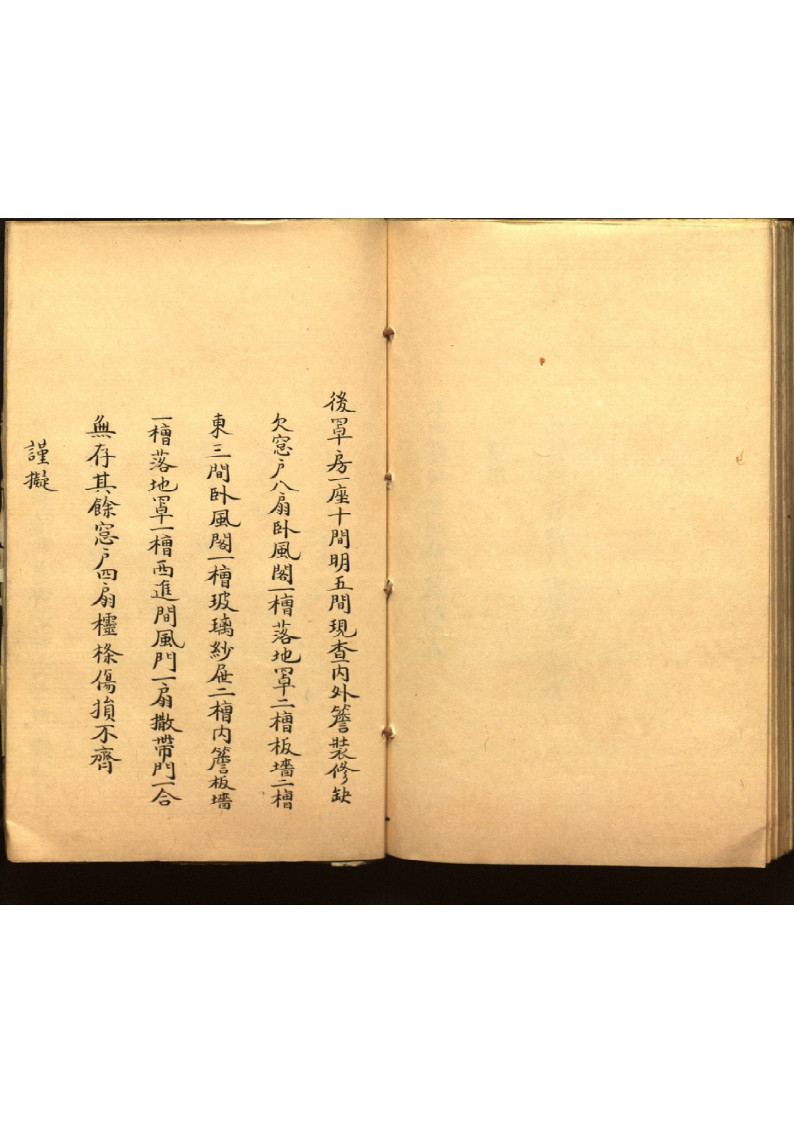 後罩房一座十間明五間現查内外簷裝修缺
欠窓户八扇卧風閣一槽落地罩二槽板墻二槽
東三間卧風閣一槽玻璃紗屉二槽内簷板墻
一槽落地罩一槽西進間風門一扇撒帶門一合
無存其餘窓户四扇櫺條傷損不齊
謹擬